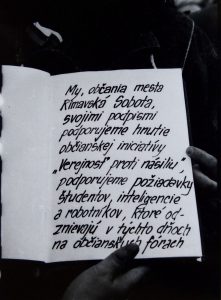 My, občania mesta
Rimavská Sobota,
svojimi podpismi
podporujeme hnutie
občianskej iniciatívy
„Verejnosť proti násiliu",
podporujeme požiadavky
študentov, inteligencie
a robotníkov, ktoré od-
znievajú v týchto dňoch
na občianskych fórach